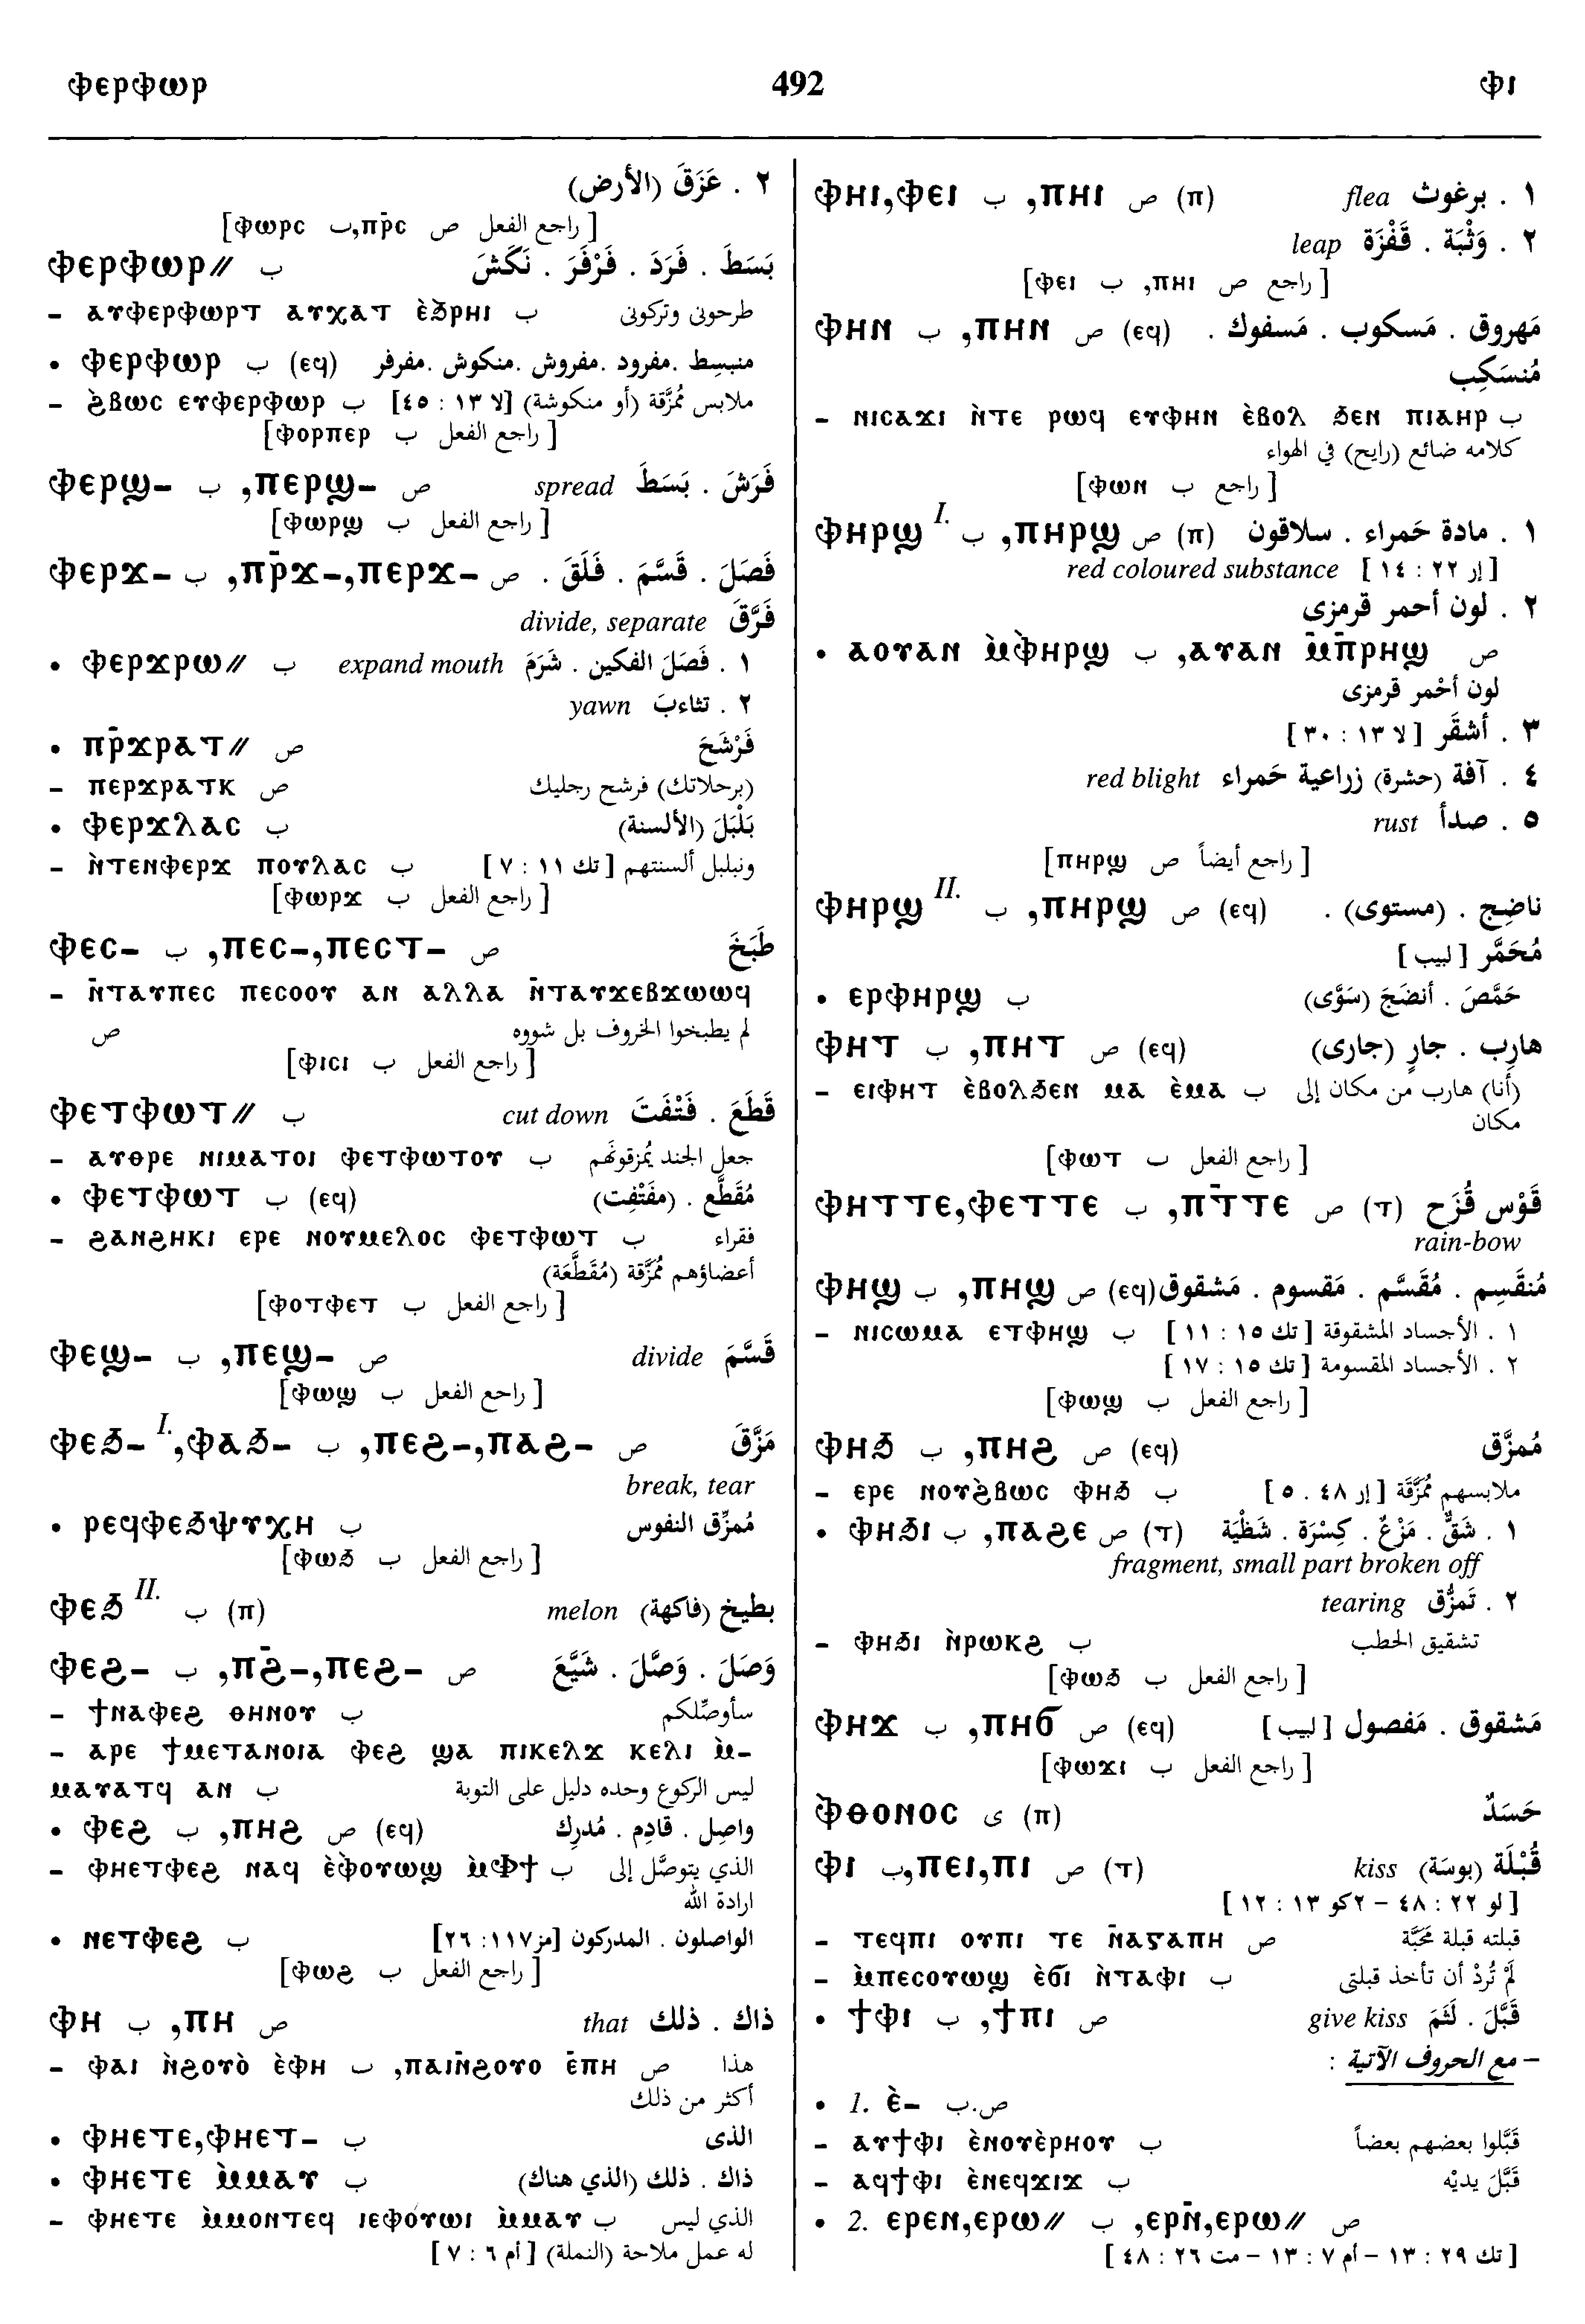 ⲫⲉⲣⲫⲱⲣ 492 ⲫⲓ
٢ . عَزَقَ (الأرض)
[ راجع الفعل ص ⲡⲣ̄ⲥ, ب ⲫⲱⲣⲥ]
ⲫⲉⲣⲫⲱⲣ// ب بَسَطَ . فَرَدَ . فَرْفَرَ . نَكَشَ
– ⲁⲩⲫⲉⲣⲫⲱⲣⲧ ⲁⲩⲭⲁⲧ ⲉ̀ϧⲣⲏⲓ ب طرحونى وتركونى
• ⲫⲉⲣⲫⲱⲣ ب (ⲉϥ) منبسِط .مفرود. مفروش .منكوش .مفرفر
– ϩ̀ⲃⲱⲥ ⲉⲩⲫⲉⲣⲫⲱⲣ ب ملابس مُمَزَّقة (أو منكوشة) [لا ١٣ : ٤٥]
[ راجع الفعل ب ⲫⲟⲣⲡⲉⲣ]
ⲫⲉⲣϣ– ب ,ⲡⲉⲣϣ– ص فَرَشَ . بَسَطَ spread
[ راجع الفعل ب ⲫⲱⲣϣ]
ⲫⲉⲣϫ– ب ,ⲡⲣ̄ϫ–,ⲡⲉⲣϫ– ص فَصَلَ . قَسَّمَ . فَلَقَ .
فَرَّقَ divide, separate
• ⲫⲉⲣϫⲣⲱ// ب ١ . فَصَلَ الفكين . شَرَمَ expand mouth
٢ . تثاءبَ yawn
• ⲡⲣ̄ϫⲣⲁⲧ// ص فَرْشَحَ
– ⲡⲉⲣϫⲣⲁⲧⲕ ص (برحلاتك) فرشح رجليك
• ⲫⲉⲣϫⲗⲁⲥ ب بَلْبَلَ (الألسنة)
– ⲛ̀ⲧⲉⲛⲫⲉⲣϫ ⲡⲟⲩⲗⲁⲥ ب ونبلبل ألسنتهم [ تك ١١ : ٧ ]
[ راجع الفعل ب ⲫⲱⲣϫ]
ⲫⲉⲥ– ب ,ⲡⲉⲥ–,ⲡⲉⲥⲧ– ص طَبَخَ
– ⲛ̄ⲧⲁⲩⲡⲉⲥ ⲡⲉⲥⲟⲟⲩ ⲁⲛ ⲁⲗⲗⲁ ⲛ̄ⲧⲁⲩϫⲉⲃϫⲱⲱϥ
لم يطبخوا الخروف بل شووه ص
[ راجع الفعل ب ⲫⲓⲥⲓ]
ⲫⲉⲧⲫⲱⲧ// ب قَطَعَ . فَتْفَتَ cut down
– ⲁⲩⲑⲣⲉ ⲛⲓⲙⲁⲧⲟⲓ ⲫⲉⲧⲫⲱⲧⲟⲩ ب جعل الجند يُمزقونهم
• ⲫⲉⲧⲫⲱⲧ ب (ⲉϥ) مُقَطَّع . (مفَتْفِت)
– ϩⲁⲛϩⲏⲕⲓ ⲉⲣⲉ ⲛⲟⲩⲙⲉⲗⲟⲥ ⲫⲉⲧⲫⲱⲧ ب فقراء
أعضاؤهم مُمَزَّقة (مُقَطَّعَة)
[ راجع الفعل ب ⲫⲟⲧⲫⲉⲧ]
ⲫⲉϣ– ب ,ⲡⲉϣ– ص قَسَّمَ divide
[ راجع الفعل ب ⲫⲱϣ]
ⲫⲉϧ– I.,ⲫⲁϧ– ب ,ⲡⲉϩ–,ⲡⲁϩ– ص مَزَّقَ
break, tear
• ⲣⲉϥⲫⲉϧⲯⲩⲭⲏ ب مُمزِّق النفوس
[ راجع الفعل ب ⲫⲱϧ]
ⲫⲉϧ II. ب (ⲡ) بطيخ (فاكهة) melon
ⲫⲉϩ– ب ,ⲡϩ̄–,ⲡⲉϩ– ص وَصَلَ . وَصَّلَ . شَيَّعَ
– ϯⲛⲁⲫⲉϩ ⲑⲏⲛⲟⲩ ب سأوصِّلكم
– ⲁⲣⲉ ϯⲙⲉⲧⲁⲛⲟⲓⲁ ⲫⲉϩ ϣⲁ ⲡⲓⲕⲉⲗϫ ⲕⲉⲗⲓ ⲙ̀–
ⲙⲁⲩⲁⲧϥ ⲁⲛ ب ليس الركوع وحده دليل على التوبة
• ⲫⲉϩ ب ,ⲡⲏϩ ص (ⲉϥ) واصِل . قادِم . مُدرِك
– ⲫⲏⲉⲧⲫⲉϩ ⲛⲁϥ ⲉ̀ⲫⲟⲩⲱϣ ⲙ̀ⲫϯ ب الذي يتوصَّل إلى
ارادة الله
• ⲛⲉⲧⲫⲉϩ ب الواصلون . المدركون [مز١١٧: ٢٦]
[ راجع الفعل ب ⲫⲱϩ]
ⲫⲏ ب ,ⲡⲏ ص ذاك . ذلك that
– ⲫⲁⲓ ⲛ̀ϩⲟⲩⲟ̀ ⲉ̀ⲫⲏ ب ,ⲡⲁⲓⲛ̄ϩⲟⲩⲟ ⲉ̄ⲡⲏ ص هذا
أكثر من ذلك
• ⲫⲏⲉⲧⲉ,ⲫⲏⲉⲧ– ب الذى
• ⲫⲏⲉⲧⲉ ⲙ̀ⲙⲁⲩ ب ذاك . ذلك (الذي هناك)
– ⲫⲏⲉⲧⲉ ⲙ̀ⲙⲟⲛⲧⲉϥ ⲓⲉⲫⲟ́ⲩⲱⲓ ⲙ̀ⲙⲁⲩ ب الذي ليس
له عمل ملاحة (النملة) [ أم ٦ : ٧ ]
ⲫⲏⲓ,ⲫⲉⲓ ب ,ⲡⲏⲓ ص (ⲡ) ١ . برغوث flea
٢ . وَثْبَة . قَفْزَة leap
[ راجع ص ⲡⲏⲓ, ب ⲫⲉⲓ]
ⲫⲏⲛ ب ,ⲡⲏⲛ ص (ⲉϥ) مَهروق . مَسكوب . مَسفوك .
مُنسَكِب
– ⲛⲓⲥⲁϫⲓ ⲛ̀ⲧⲉ ⲣⲱϥ ⲉⲩⲫⲏⲛ ⲉ̀ⲃⲟⲗ ϧⲉⲛ ⲡⲓⲁⲏⲣ ب
كلامه ضائع (رايح) في الهواء
[ راجع ب ⲫⲱⲛ]
ⲫⲏⲣϣ I. ب ,ⲡⲏⲣϣ ص (ⲡ) ١ . مادة حَمراء . سلاقون
[ إر ٢٢ : ١٤ ] red coloured substance
٢ . لون أحمر قرمزى
• ⲁⲟⲩⲁⲛ ⲙ̀ⲫⲏⲣϣ ب ,ⲁⲩⲁⲛ ⲙ̄ⲡ̄ⲣⲏϣ ص
لون أحْمر قرمزى
٣ . أشقَر [ لا ١٣ : ٣٠ ]
٤ . آفة (حشرة) زراعية حَمراء red blight
٥ . صدأ rust
[ راجع أيضاً ص ⲡⲏⲣϣ]
ⲫⲏⲣϣ II. ب ,ⲡⲏⲣϣ ص (ⲉϥ) ناضِج . (مستوى) .
مُحَمَّر [ لبيب ]
• ⲉⲣⲫⲏⲣϣ ب حَمَّصَ . أنضَجَ (سَوَّى)
ⲫⲏⲧ ب ,ⲡⲏⲧ ص (ⲉϥ) هارِب . جارٍ (جارى)
– ⲉⲓⲫⲏⲧ ⲉ̀ⲃⲟⲗϧⲉⲛ ⲙⲁ ⲉ̀ⲙⲁ ب (أنا) هارب من مكان إلى
مكان
[ راجع الفعل ب ⲫⲱⲧ]
ⲫⲏⲧⲧⲉ,ⲫⲉⲧⲧⲉ ب ,ⲡ̄ⲧⲧⲉ ص (ⲧ) قَوْس قُزَح
rain-bow
ⲫⲏϣ ب ,ⲡⲏϣ ص (ⲉϥ) مُنقَسِم . مُقَسَّم . مَقسوم . مَشقوق
– ⲛⲓⲥⲱⲙⲁ ⲉⲧⲫⲏϣ ب ١ . الأجساد المشقوقة [ تك ١٥ : ١١ ]
٢ . الأجساد المقسومة [ تك ١٥ : ١٧ ]
[ راجع الفعل ب ⲫⲱϣ]
ⲫⲏϧ ب ,ⲡⲏϩ ص (ⲉϥ) مُمزَّق
– ⲉⲣⲉ ⲛⲟⲩϩ̀ⲃⲱⲥ ⲫⲏϧ ب ملابسهم مُمَزَّقَة [ إر ٤٨ . ٥ ]
• ⲫⲏϧⲓ ب ,ⲡⲁϩⲉ ص (ⲧ) ١ . شَقٌّ . مَزْعٌ . كِسْرَة . شَظْيَة
fragment, small part broken off
٢ . تَمزُّق tearing
– ⲫⲏϧⲓ ⲛ̀ⲣⲱⲕϩ ب تشقيق الحطب
[ راجع الفعل ب ⲫⲱϧ]
ⲫⲏϫ ب ,ⲡⲏϭ ص (ⲉϥ) مَشقوق . مَفصول [ لبيب ]
[ راجع الفعل ب ⲫⲱϫⲓ]
ⲫⲑⲟⲛⲟⲥ ى (ⲡ) حَسَدٌ
ⲫⲓ ب,ⲡⲉⲓ,ⲡⲓ ص (ⲧ) قُبْلَة (بوسَة) kiss
[ لو ٢٢ : ٤٨ – ٢كو ١٣ : ١٢ ]
– ⲧⲉϥⲡⲓ ⲟⲩⲡⲓ ⲧⲉ ⲛ̄ⲁⲅⲁⲡⲏ ص قبلته قبلة مَحَبَّة
– ⲙ̀ⲡⲉⲥⲟⲩⲱϣ ⲉ̀ϭⲓ ⲛ̀ⲧⲁⲫⲓ ب لَمْ تُرِدْ أن تأخذ قبلتى
• ϯⲫⲓ ب ,ϯⲡⲓ ص قَبَّلَ . لَثَمَ give kiss
– مع الحروف الآتية :
• 1. ⲉ̀– ص.ب
– ⲁⲩϯⲫⲓ ⲉ̀ⲛⲟⲩⲉ̀ⲣⲏⲟⲩ ب قَبَّلوا بعضهم بعضاً
– ⲁϥϯⲫⲓ ⲉ̀ⲛⲉϥϫⲓϫ ب قَبَّلَ يديْه
• 2. ⲉⲣⲉⲛ,ⲉⲣⲱ// ب ,ⲉⲣⲛ̄,ⲉⲣⲱ// ص
[ تك ٢٩ : ١٣ – أم ٧ : ١٣ – مت ٢٦ : ٤٨ ]